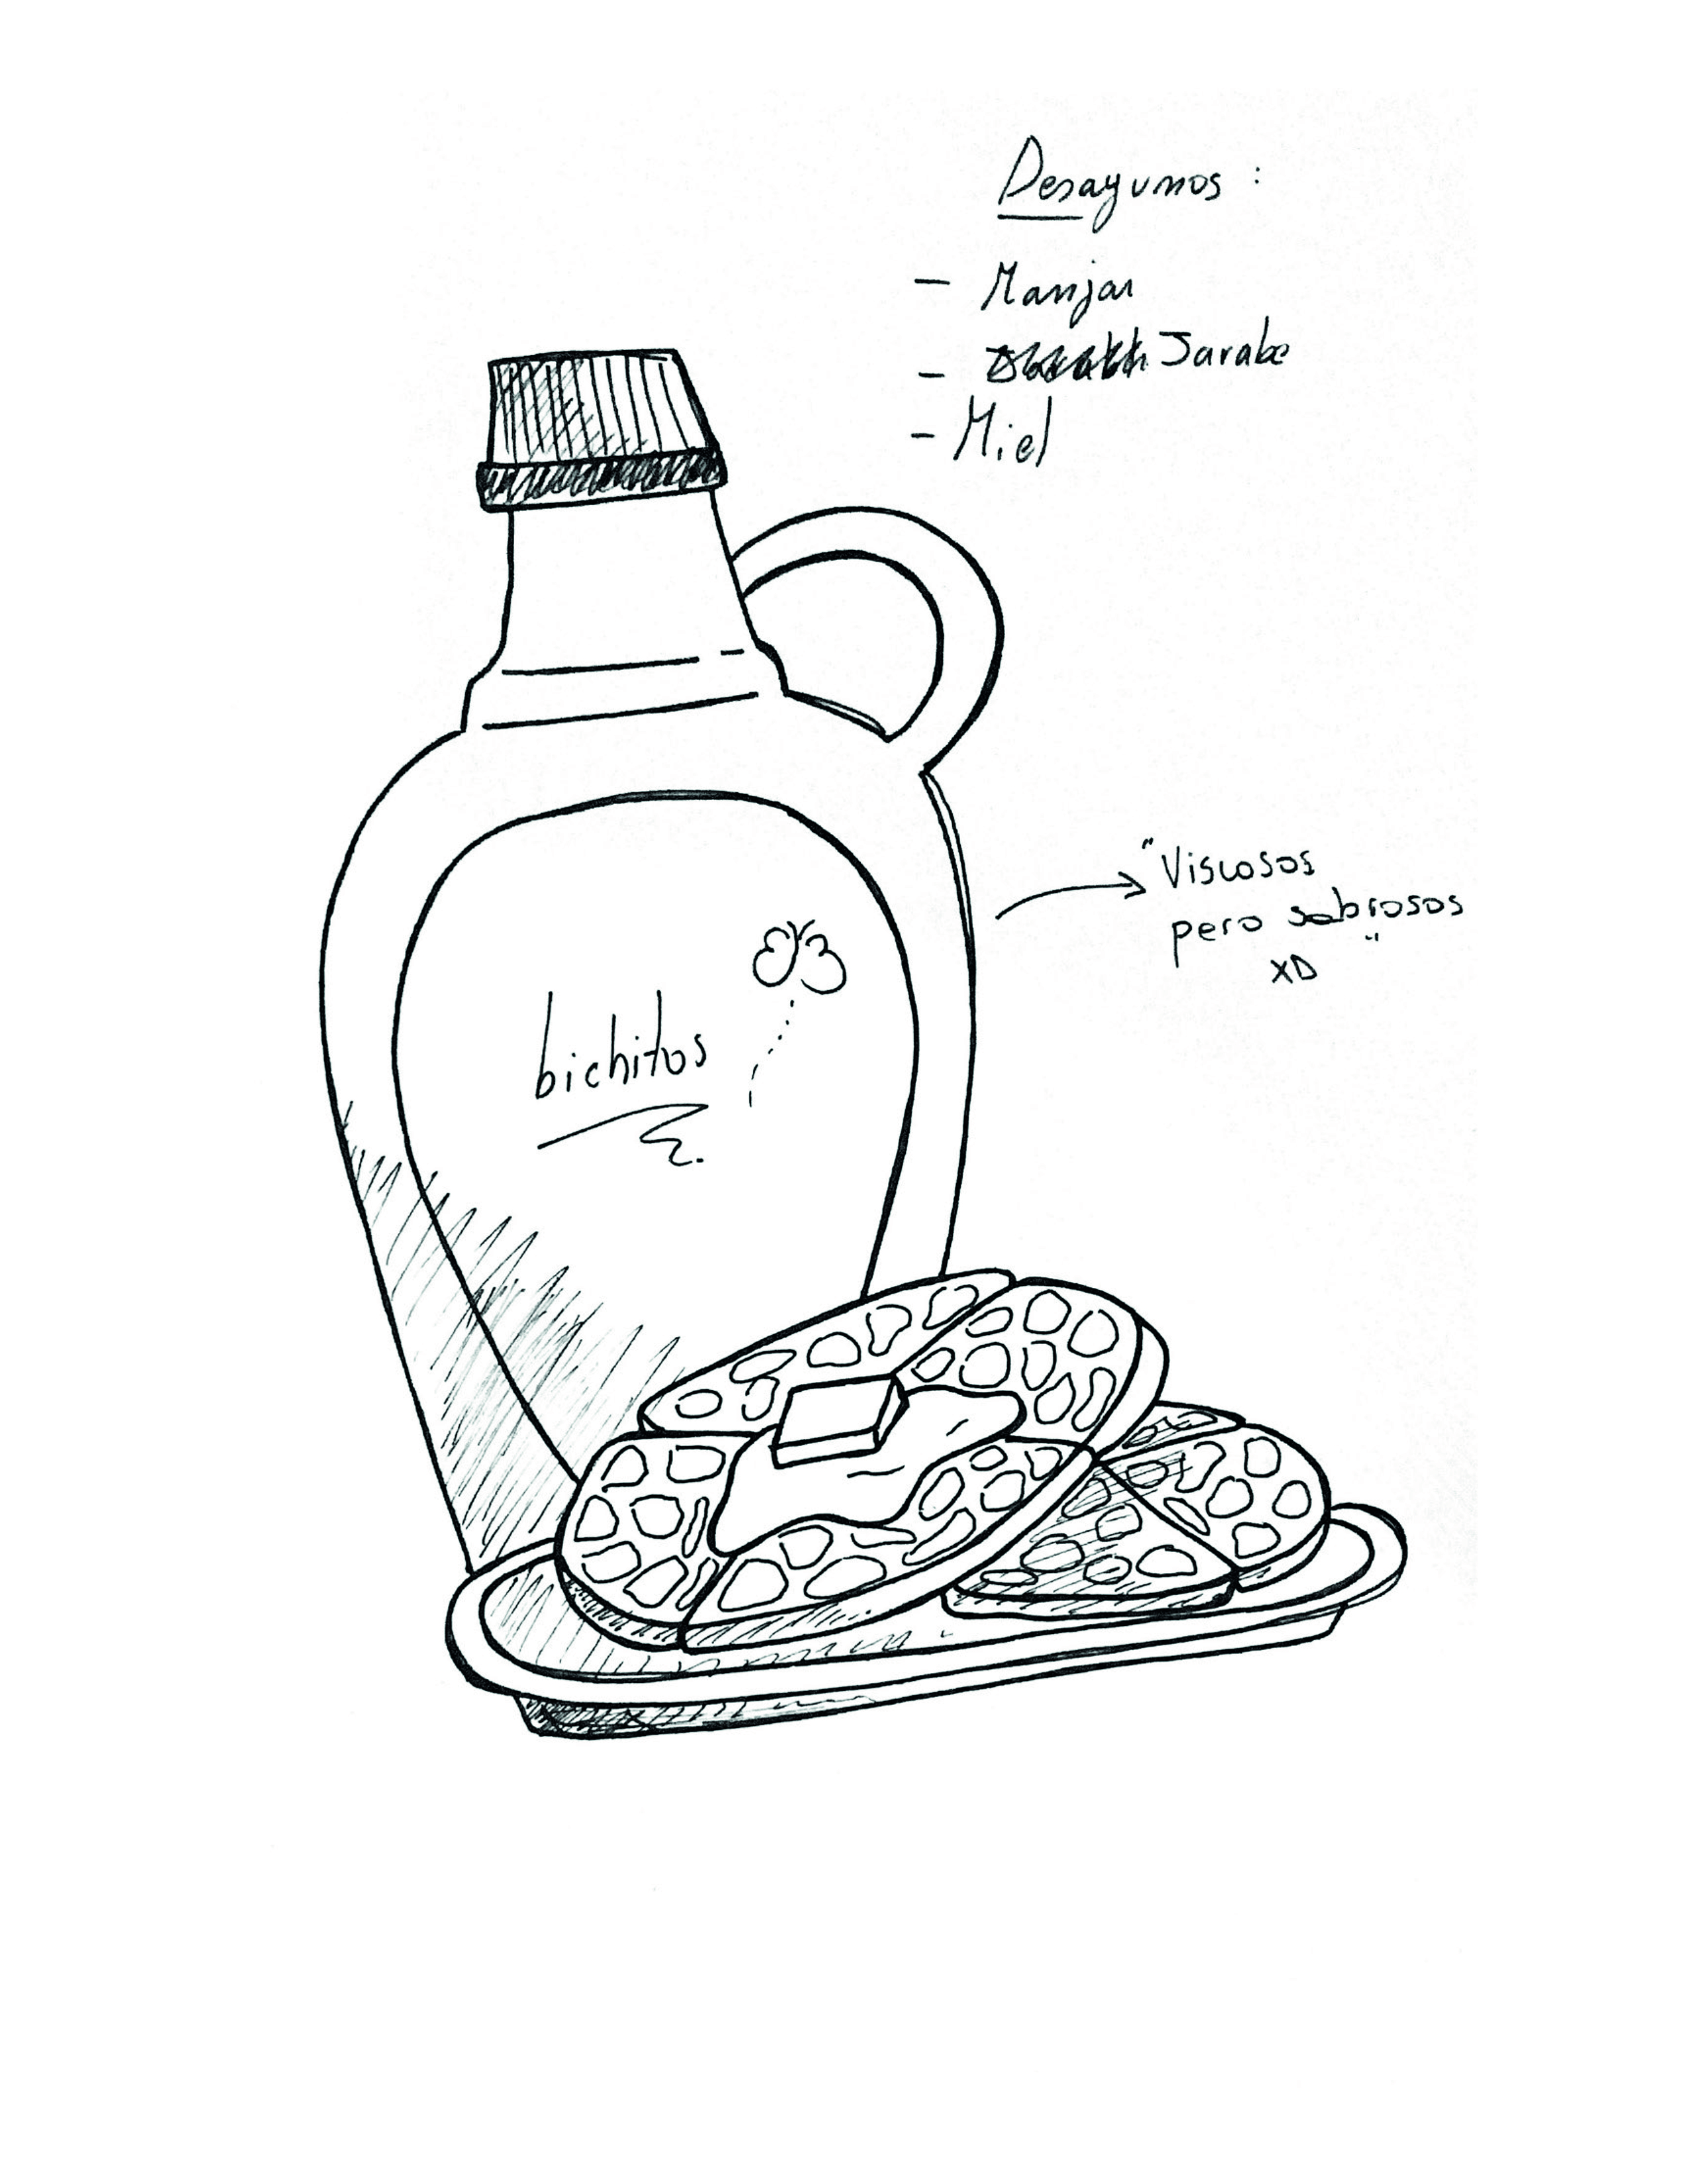 Desayunos :
- Manjar
- Jarabe
- Miel
"Viscosos
pero sabrosos"
XD
bichitos